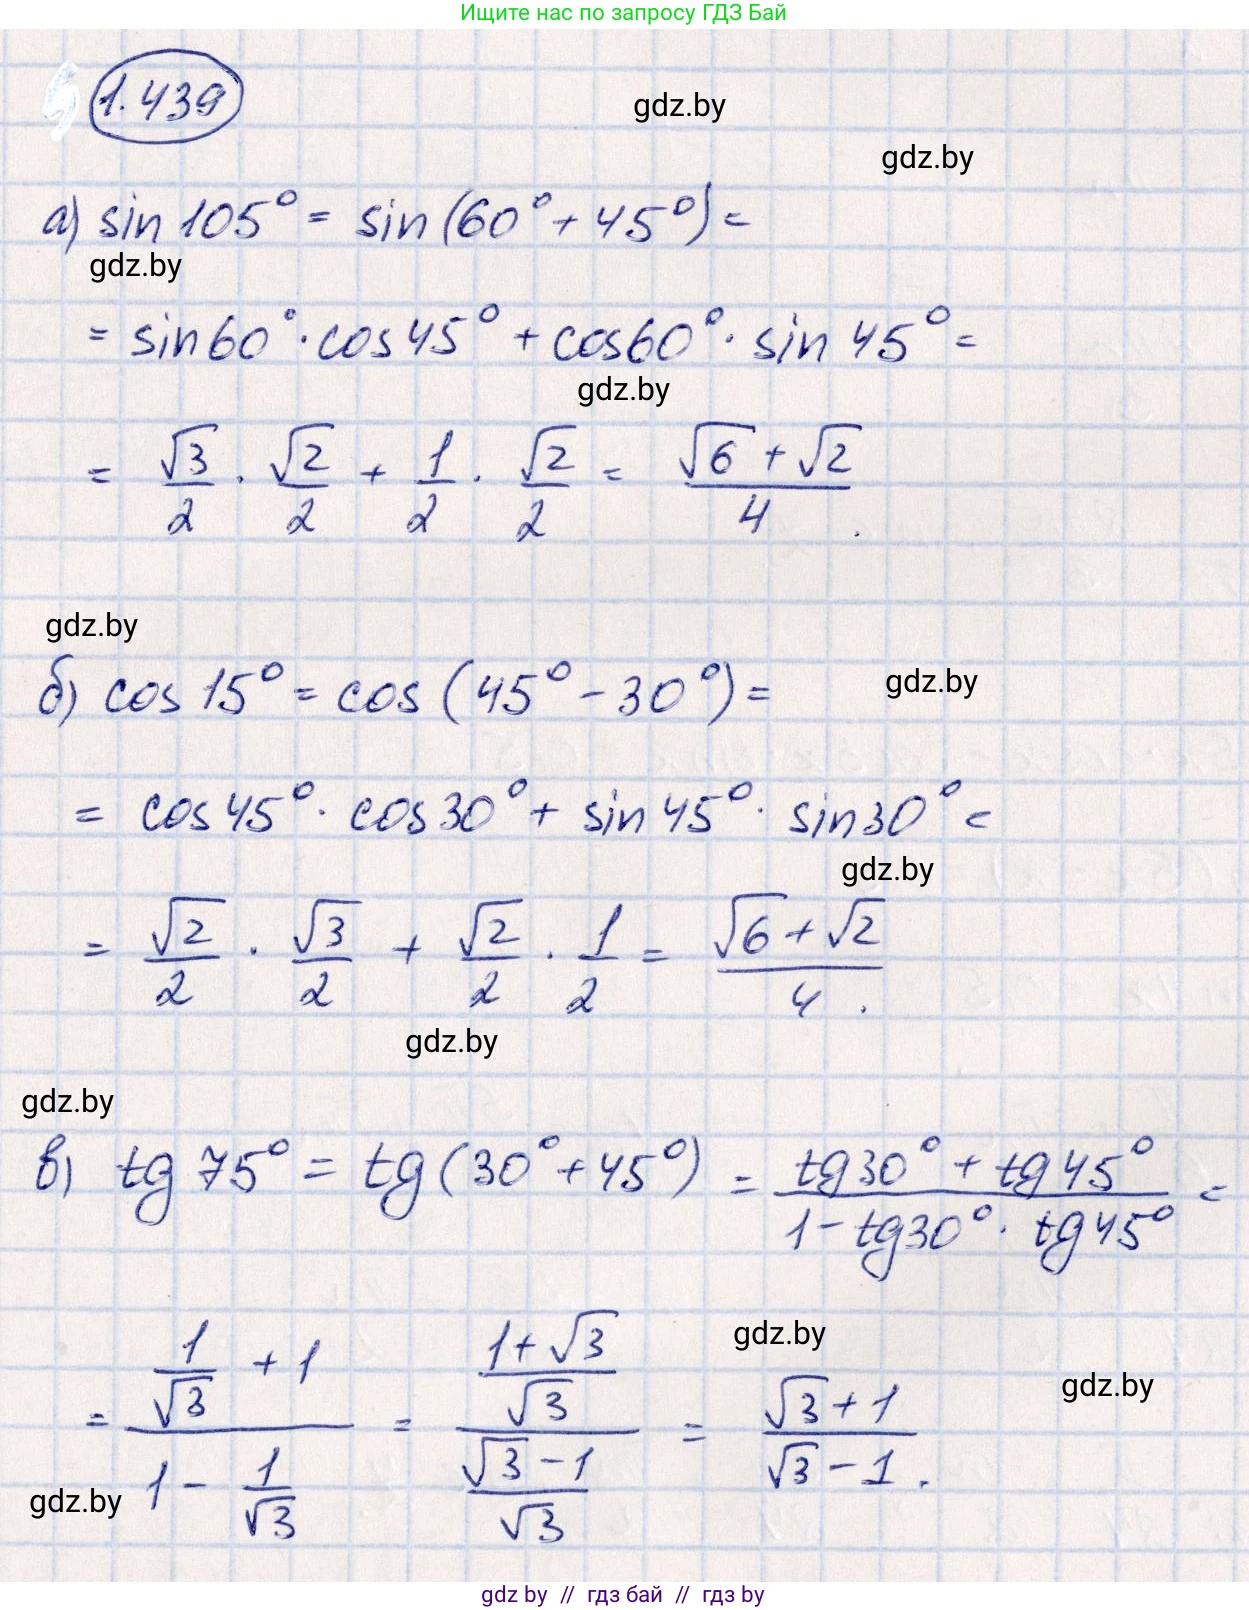 Ищите нас по запросу ГДЗ Бай
1.439
gdz.by
gdz.by
а) sin 105° = sin (60° + 45°) =
gdz.by
= sin 60° · cos 45° + cos 60° · sin 45° =
gdz.by
= √3/2 · √2/2 + 1/2 · √2/2 = (√6 + √2)/4 .
gdz.by
б) cos 15° = cos (45° - 30°) =
gdz.by
= cos 45° · cos 30° + sin 45° · sin 30° =
gdz.by
= √2/2 · √3/2 + √2/2 · 1/2 = (√6 + √2)/4 .
gdz.by
gdz.by
в) tg 75° = tg (30° + 45°) = (tg 30° + tg 45°)/(1 - tg 30° · tg 45°) =
gdz.by
gdz.by
= (1/√3 + 1)/(1 - 1/√3) = ((1 + √3)/√3)/((√3 - 1)/√3) = (√3 + 1)/(√3 - 1) .
gdz.by
gdz by // гдз бай // гдз by